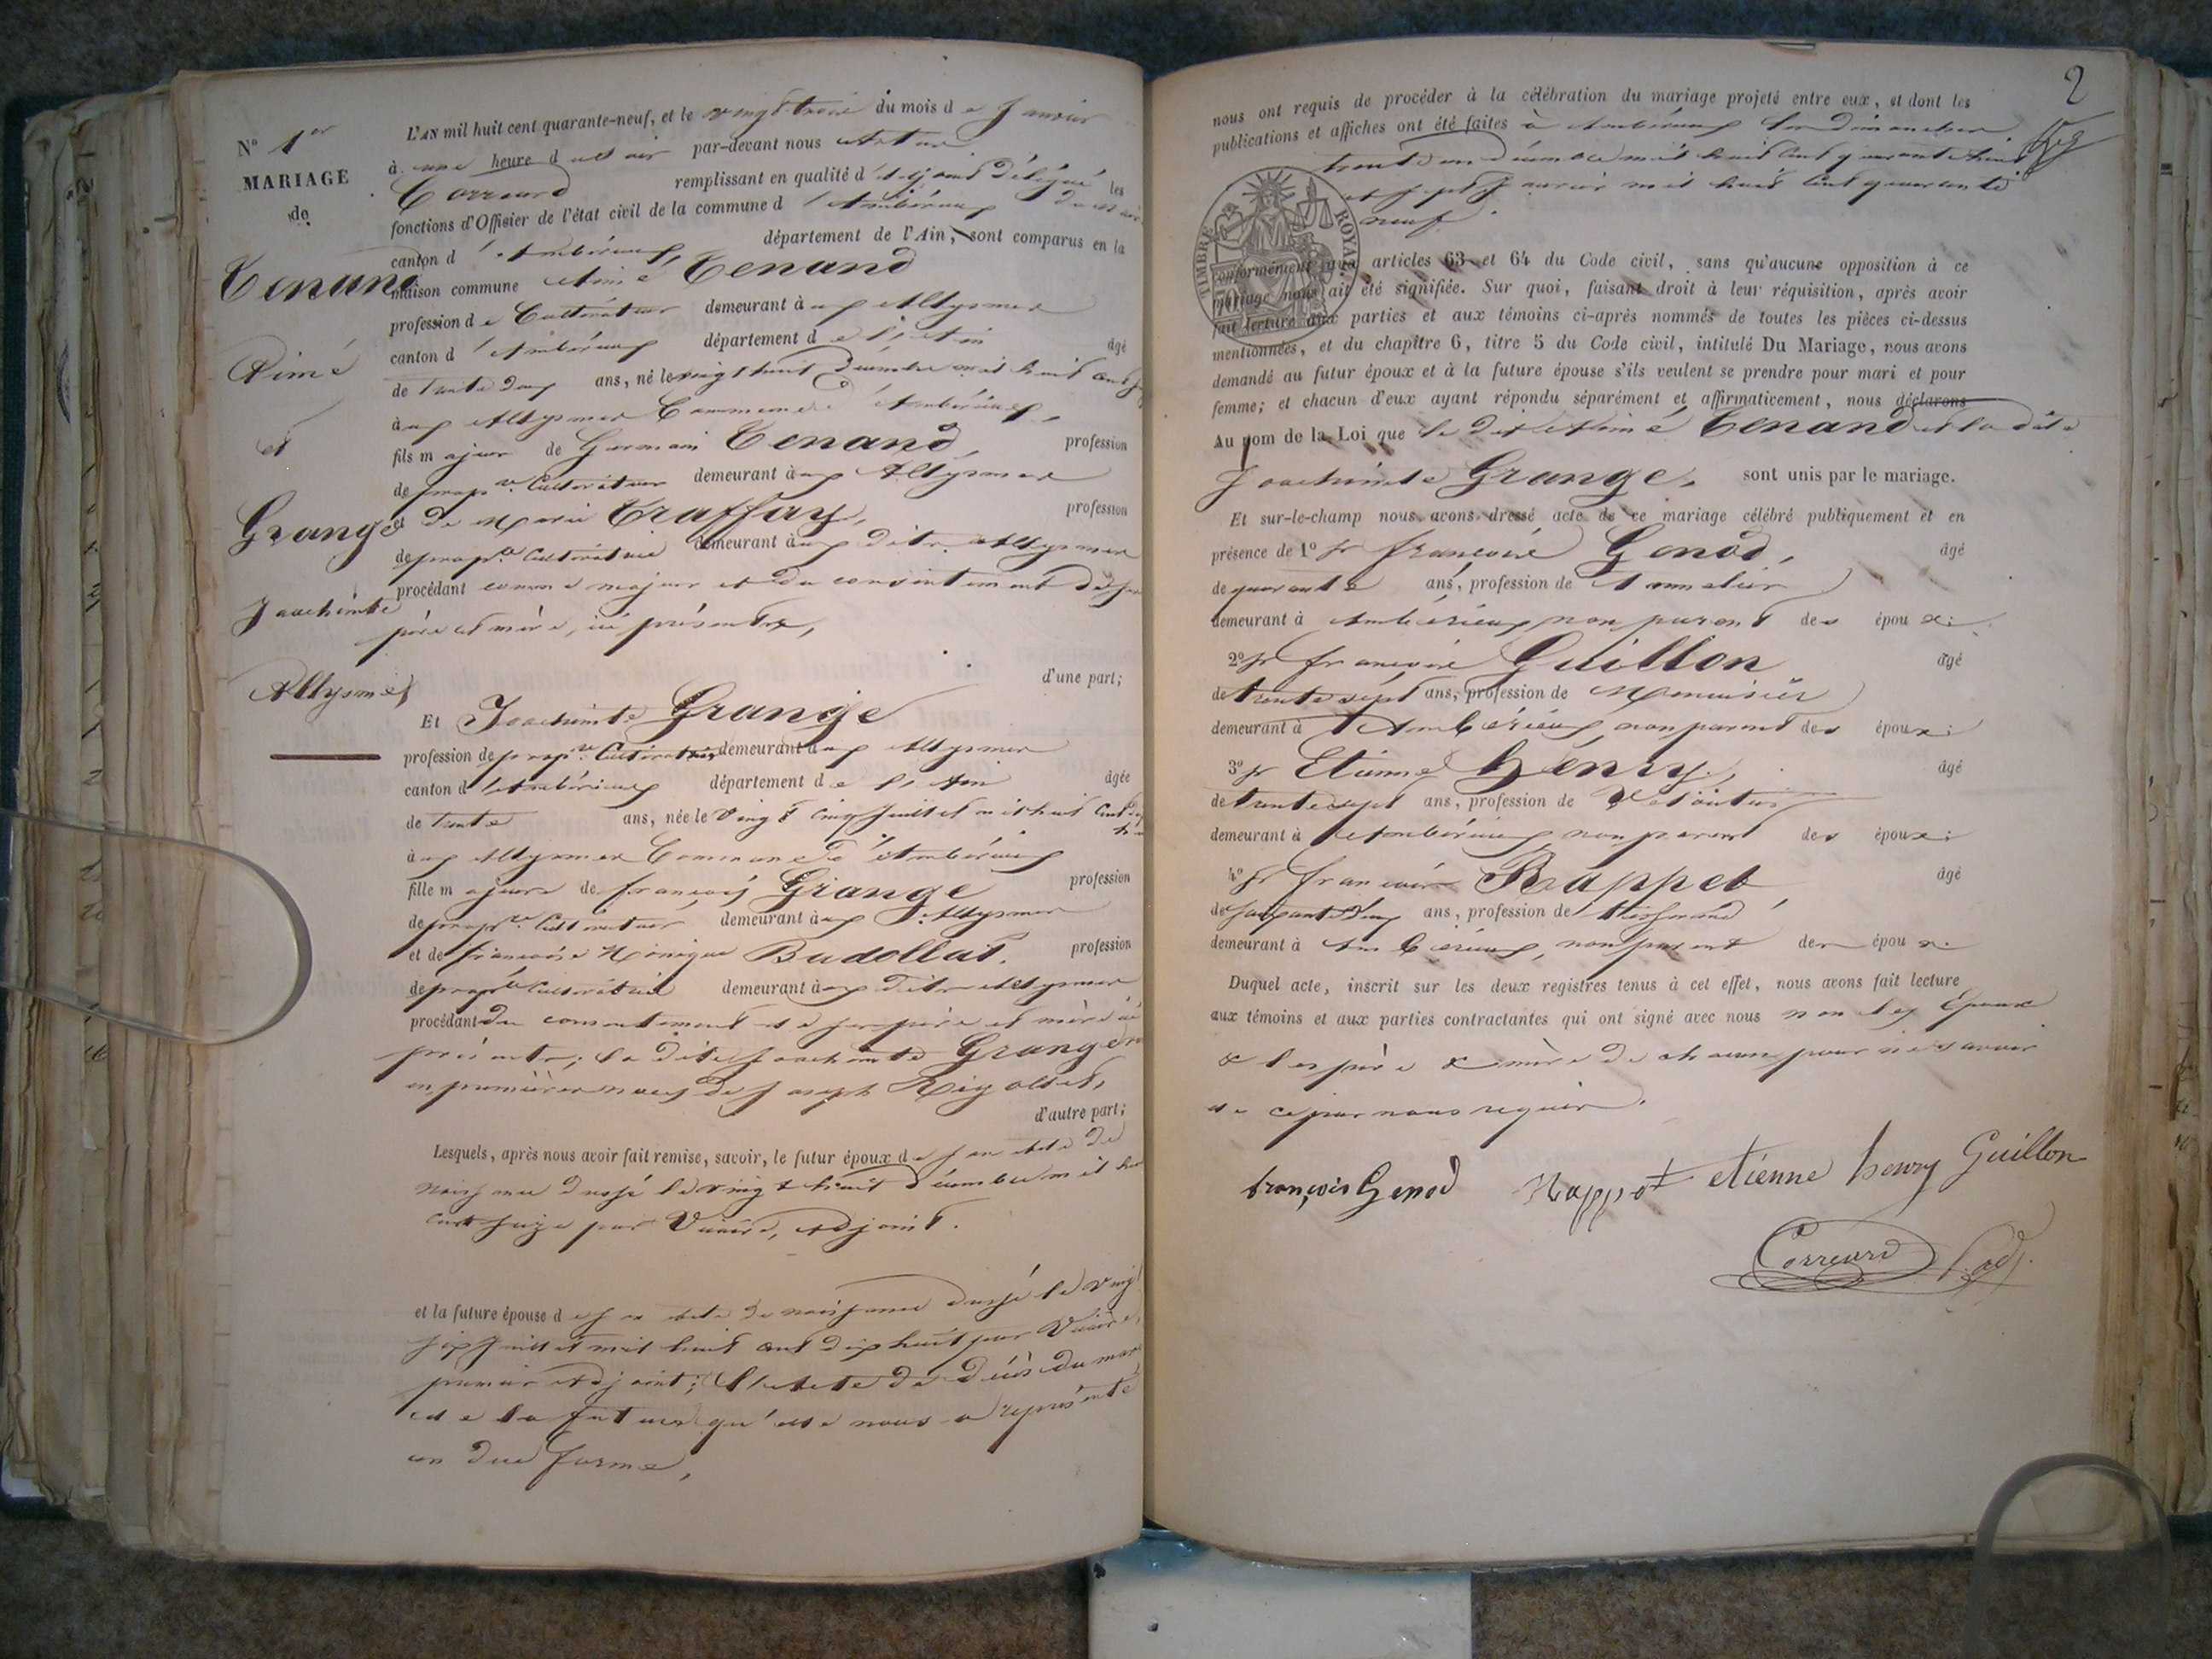 N° 1er
MARIAGE
de
Tenand
Aimé
et
Grange
Joachinte
Allysmes
L'AN mil huit cent quarante-neuf, et le vingt trois du mois de Janvier
à une heure du soir par-devant nous Artus
Correard remplissant en qualité d'Adjoint délégué les
fonctions d'Offisier de l'état civil de la commune d'Ambérieux
canton d'Ambérieux, département de l'Ain, sont comparus en la
maison commune Aimé Tenand
profession de Cultivateur demeurant aux Allysmes
canton d'Ambérieux département de l'Ain âgé
de trente deux ans, né le vingt huit décembre mil huit cent
aux Allysmes Commune d'Ambérieux,
fils majeur de Germain Tenand, profession
de propre. Cultivateur demeurant aux Allysmes
et de Marie Traffay, profession
de propre. Cultivatrice demeurant aux dits Allysmes
procédant comme majeur et du consentement de ses
père et mère, ici présents,
d'une part;
Et Joachinte Grange
profession de propre. Cultivatrice demeurant aux Allysmes
canton d'Ambérieux département de l'Ain âgée
de trente ans, née le vingt cinq Juillet mil huit cent dix
aux Allysmes Commune d'Ambérieux
fille majeure de françois Grange profession
de propre. Cultivateur demeurant aux Allysmes
et de françoise Monique Budollat. profession
de propre. Cultivatrice demeurant aux dits Allysmes
procédant du consentement de ses père et mère ici
présents; la dite Joachinte Grange
en premières noces de Joseph Rigollet,
d'autre part;
Lesquels, après nous avoir fait remise, savoir, le futur époux de son acte de
naissance dressé le vingt huit décembre mil huit
cent seize par Vicaire, Adjoint.
et la future épouse de son acte de naissance dressé le vingt
six Juillet mil huit cent dix huit par Vicaire,
premier Adjoint; l'acte de décès du mari
de la future qu'elle nous a représenté
en due forme,
2
nous ont requis de procéder à la célébration du mariage projeté entre eux, et dont les
publications et affiches ont été faites à Ambérieux les dimanches
trente un décembre mil huit cent quarante huit
et sept Janvier mil huit cent quarante
neuf.
TIMBRE ROYAL
conformément aux articles 63 et 64 du Code civil, sans qu'aucune opposition à ce
mariage nous ait été signifiée. Sur quoi, faisant droit à leur réquisition, après avoir
fait lecture aux parties et aux témoins ci-après nommés de toutes les pièces ci-dessus
mentionnées, et du chapitre 6, titre 5 du Code civil, intitulé Du Mariage, nous avons
demandé au futur époux et à la future épouse s'ils veulent se prendre pour mari et pour
femme; et chacun d'eux ayant répondu séparément et affirmativement, nous déclarons
Au nom de la Loi que le dit Aimé Tenand et la dite
Joachinte Grange. sont unis par le mariage.
Et sur-le-champ nous avons dressé acte de ce mariage célébré publiquement et en
présence de 1° sr françois Genod, âgé
de quarante ans, profession de tonnelier
demeurant à Ambérieux non parent des époux;
2° sr françois Guillon âgé
de trente sept ans, profession de Menuisier
demeurant à Ambérieux, non parent des époux;
3° sr Etienne henry, âgé
de trente sept ans, profession de
demeurant à Ambérieux, non parent des époux;
4° sr françois Rappet âgé
de ans, profession de
demeurant à Ambérieux, non parent des époux.
Duquel acte, inscrit sur les deux registres tenus à cet effet, nous avons fait lecture
aux témoins et aux parties contractantes qui ont signé avec nous non les Epoux
& les père & mère de chacun pour ne savoir
de ce par nous requis.
françois Genod Rappet etienne henry Guillon
Correard adj.